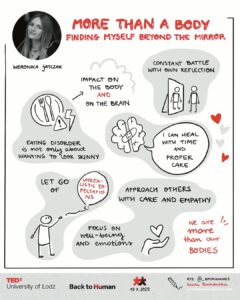 MORE THAN A BODY
FINDING MYSELF BEYOND THE MIRROR
WERONIKA JATCZAK
IMPACT ON
THE BODY
AND
ON THE BRAIN
CONSTANT BATTLE
WITH OWN REFLECTION
EATING DISORDER
IS NOT ONLY ABOUT
WANTING TO LOOK SKINNY
I CAN HEAL
WITH TIME
AND
PROPER
CARE
LET GO
OF
UNREA-
LISTIC EX-
PECTATIO-
NS
APPROACH OTHERS
WITH CARE AND EMPATHY
FOCUS ON
well-being
AND emotions
we are
more
than our
BODIES
TEDx
University of Lodz
Back to Human
18 X 2025
RYS.